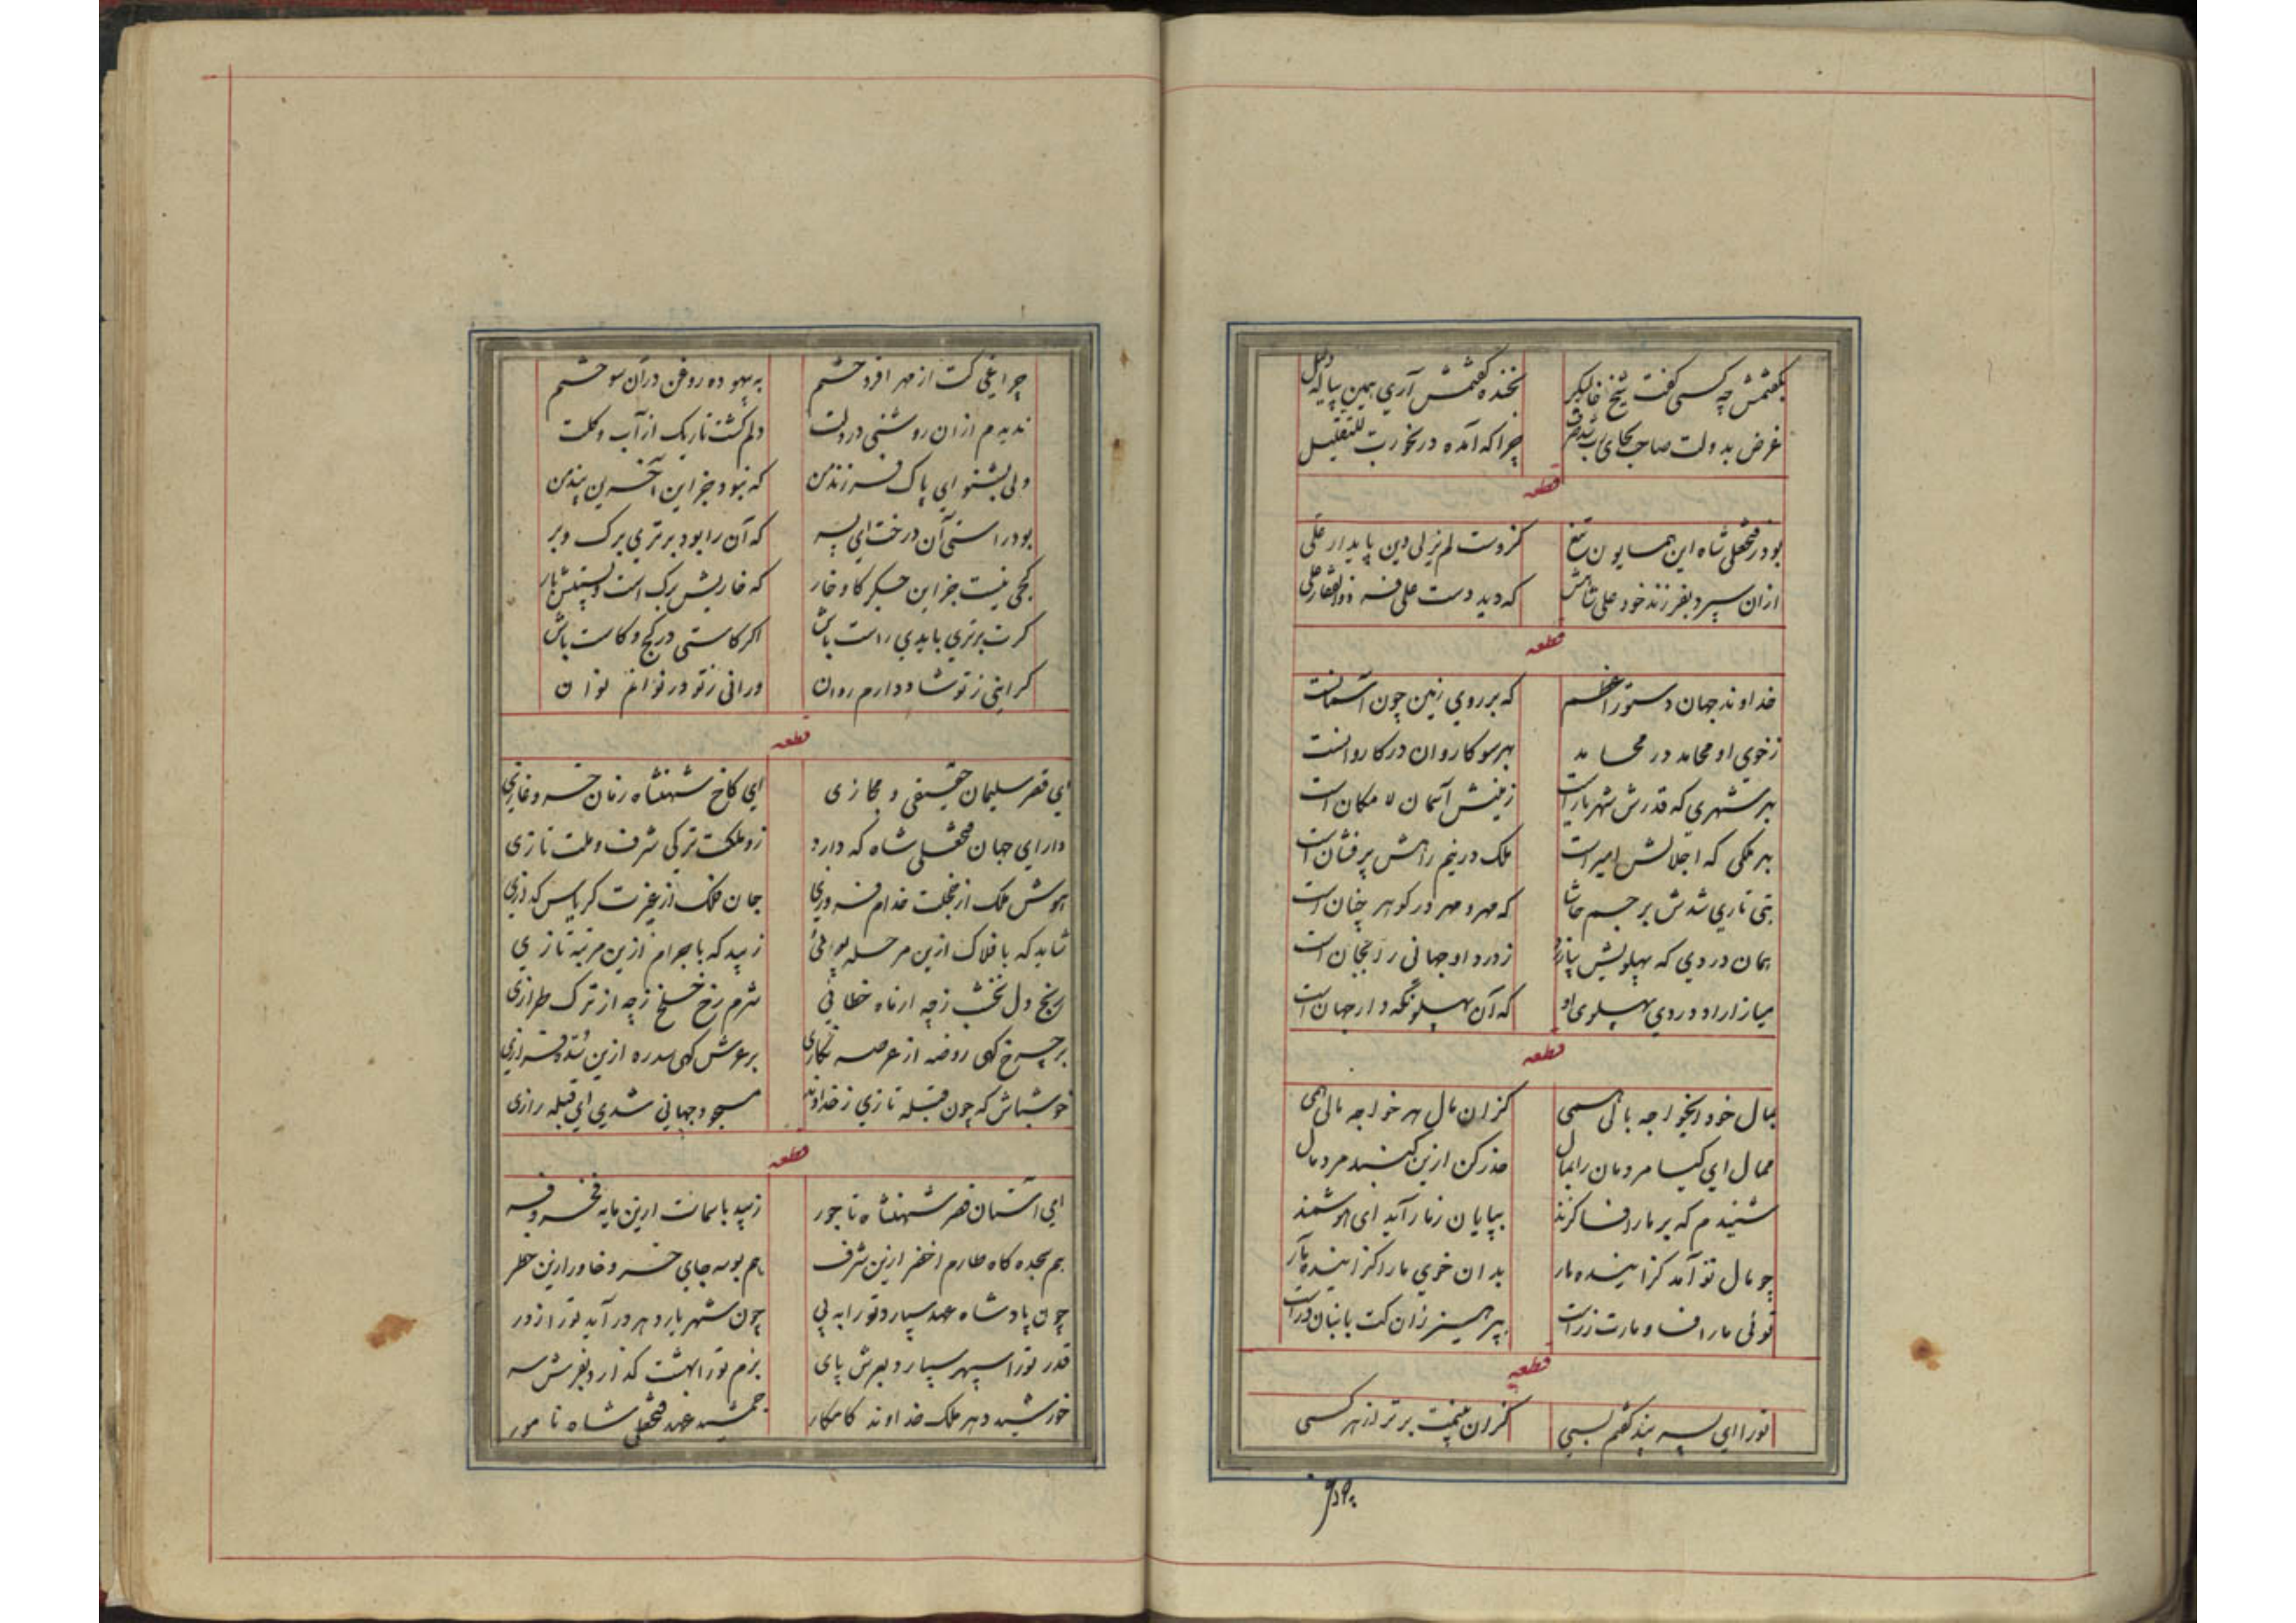 بگفتمش چه کسی گفت شیخ
بخنده گفتمش آری همین پیاله دلیل
غرض بدولت صاحب بجای
چرا که آمده در خورب للتقلیل
قطعه
بود ز فتحعلی شاه این همایون تیغ
کزوست لم یزلی دین پایدار علی
ازان سپرد بفرزند خود علی شاهش
که دید دست علی فر ذوالفقار علی
قطعه
خداوند جهان دستور اعظم
که بر روی زمین چون آسمانست
ز خوی او محامد در محامد
بهر سو کاروان در کاروانست
بهر شهری که قدرش شهریار است
زمینش آسمان لا مکان است
بهر ملکی که اجلالش امیر است
ملک در نیم راهش پر فشان است
تبی تاری شدش بر جسم حاشا
که مهر و مهر در گوهر چنان است
همان دردی که پهلویش بیازرد
ز درد او جهانی را بجان است
میازاراد دردی پهلوی او
که آن پهلو نگه دار جهان است
قطعه
بمال خود ایخواجه بالی همی
کزان مال هر خواجه مالی همی
ممال ای کیا مردمان را بمال
حذر کن ازین گنبد مرد مال
شنیدم که بر مار افسا گزند
بپایان ز مار آید ای هوشمند
چو مال تو آمد گزاینده مار
بدان خوی مار گزاینده آر
توئی مار افسا و مارت زر است
بپرهیز زان کت بانبان در است
قطعه
تو را ای پسر پند گفتم بسی
کزان نیست برتر از هر کسی
به بیهوده
چراغی کت از مهر افروختم
به بیهوده روغن در آن سوختم
ندیدم ازان روشنی در دلت
دلم گشت تاریک از آب و گلت
ولی بشنو ای پاک فرزند من
که نبود جز این آخرین پند من
بود راستی آن درخت ای پسر
که آن را بود برتری برگ و بر
کجی نیست جز این جگر کاو خار
که خاریش برگ است و پستیش بار
گرت برتری بایدی راست باش
اگر کاستی در کج و کاست باش
گر اینی ز تو شاد دارم روان
ور آنی ز تو در نوانم نوان
قطعه
ای قصر سلیمان حقیقی و مجازی
ای کاخ شهنشاه زمان خسرو غازی
دارای جهان فتحعلی شاه که دارد
زو ملکت ترکی شرف و ملت تازی
هوش ملک از خجلت خدام فروزی
جان فلک از غیرت کریاس گدازی
شاید که بافلاک ازین مرحله
زیبد که باجرام ازین مرتبه نازی
رنج دل نخشب ز چه از ماه خطائی
شرم رخ خلخ ز چه از ترک طرازی
بر چرخ کهی روضه از عرصه
بر عرش کهی سدره ازین سده فرازی
خوشباش که چون قبله تازی ز خداوند
مسجود جهانی شدی ای قبله رازی
قطعه
ای آستان قصر شهنشاه تاجور
زیبد بآسمانت ازین مایه فخر و فر
هم سجده گاه طارم اخضر ازین شرف
هم بوسه جای خسرو خاور ازین خطر
چون پادشاه عهد سپارد تو را به پی
چون شهریار دهر در آید تو را ز در
قدر تو را سپهر سپارد بعرش پای
بزم تو را بهشت گذارد بفرش سر
خورشید دهر ملک خداوند کامکار
جمشید عهد فتحعلی شاه نامور